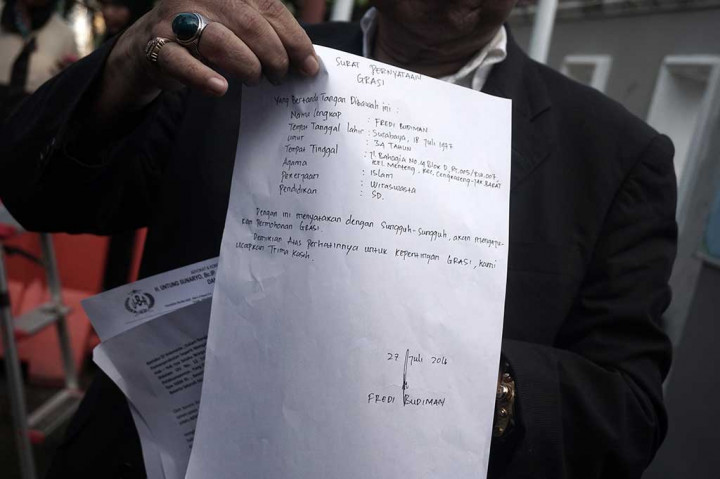 SURAT PERNYATAAN
GRASI
Yang Bertanda Tangan Dibawah ini :
Nama Lengkap : FREDI BUDIMAN
Tempat Tanggal Lahir : Surabaya, 18 Juli 1977
Umur : 34 TAHUN
Tempat Tinggal : Jl Bahagia No.19 Blok D, Rt.005/Rw.007.
Kel. Menteng, Kec. Cengkareng-Jak BARAT
Agama : Islam
Pekerjaan : Wiraswasta
Pendidikan : SD.
Dengan ini menyatakan dengan Sungguh-Sungguh, akan mengaju-
kan Permohonan GRASI.
Demikian Atas Perhatiannya untuk kepentingan GRASI, kami
ucapkan Trima kasih.
27 Juli 2016
FREDI BUDIMAN
H. UNTUNG SUNARYO,